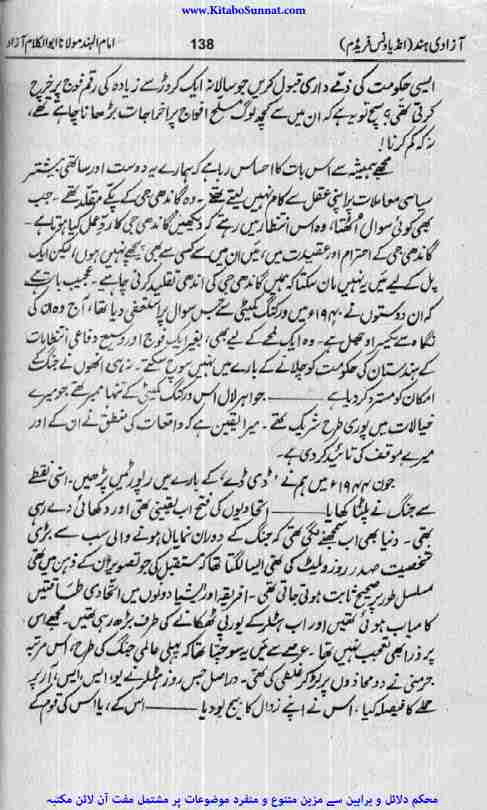 www.KitaboSunnat.com
آزادی ہند (انڈیا ونس فریڈم)
138
امام الہند مولانا ابوالکلام آزاد
ایسی حکومت کی ذمے داری قبول کریں جو سالانہ ایک کروڑ سے زیادہ کی رقم فوج پر خرچ
کرتی تھی؟ سچ تو یہ ہے کہ ان میں سے کچھ لوگ مسلح افواج پر اخراجات بڑھانا چاہتے تھے،
نہ کہ کم کرنا!
مجھے ہمیشہ سے اس بات کا احساس رہا ہے کہ ہمارے یہ دوست اور ساتھی بیشتر
سیاسی معاملات پر اپنی عقل سے کام نہیں لیتے تھے۔ وہ گاندھی جی کے پکے مقلد تھے۔ جب
بھی کوئی سوال اُٹھتا، وہ اس انتظار میں رہتے کہ دیکھیں گاندھی جی کا ردِ عمل کیا ہوتا ہے۔
گاندھی جی کے احترام اور عقیدت میں، میں ان میں سے کسی سے بھی پیچھے نہیں ہوں، لیکن ایک
پل کے لیے میں یہ نہیں مان سکتا کہ ہمیں گاندھی جی کی اندھی تقلید کرنی چاہیے۔ عجیب بات ہے
کہ ان دوستوں نے ۱۹۴۰ء میں ورکنگ کمیٹی سے جس سوال پر استعفیٰ دیا تھا، آج وہ ان کی
نگاہ سے یکسر اوجھل ہے۔ وہ ایک لمحے کے لیے بھی، بغیر ایک فوج اور وسیع دفاعی انتظامات
کے ہندستان کی حکومت کو چلانے کے بارے میں نہیں سوچ سکتے۔ نہ ہی انھوں نے جنگ کے
امکان کو مسترد کر دیا ہے ـــــــ جواہر لال اس ورکنگ کمیٹی کے تنہا ممبر تھے جو میرے
خیالات میں پوری طرح شریک تھے۔ میرا یقین ہے کہ واقعات کی منطق نے ان کے اور
میرے موقف کی تائید کر دی ہے۔
جون ۱۹۴۴ء میں ہم نے 'ڈی ڈے' کے بارے میں رپورٹیں پڑھیں۔ اسی نقطے
سے جنگ نے پلٹا کھایا ـــــــ اتحادیوں کی فتح اب یقینی تھی اور دکھائی دے رہی
تھی۔ دنیا بھی اب سمجھنے لگی تھی کہ جنگ کے دوران نمایاں ہونے والی سب سے بڑی
شخصیت صدر روزویلٹ کی تھی ایسا لگتا تھا کہ مستقبل کی جو تصویر اُن کے ذہن میں تھی
مسلسل طور پر صحیح ثابت ہوتی جاتی تھی۔ افریقہ اور ایشیا دونوں میں اتحادی طاقتیں
کامیاب ہوئی تھیں اور اب ہٹلر کے یورپی ٹھکانے کی طرف بڑھ رہی تھیں۔ مجھے اس
پر ذرا بھی تعجب نہیں تھا۔ عرصے سے میں یہ سوچتا تھا کہ پہلی عالمی جنگ کی طرح، اس مرتبہ
جرمنی نے دو محاذوں پر لڑ کر غلطی کی تھی۔ دراصل جس روز ہٹلر نے یو، ایس، ایس، آر پر
حملے کا فیصلہ کیا، اس نے اپنے زوال کا بیج بو دیا ـــــــ اس کے، یا اس کی قوم کے
محکم دلائل و براہین سے مزین متنوع و منفرد موضوعات پر مشتمل مفت آن لائن مکتبہ